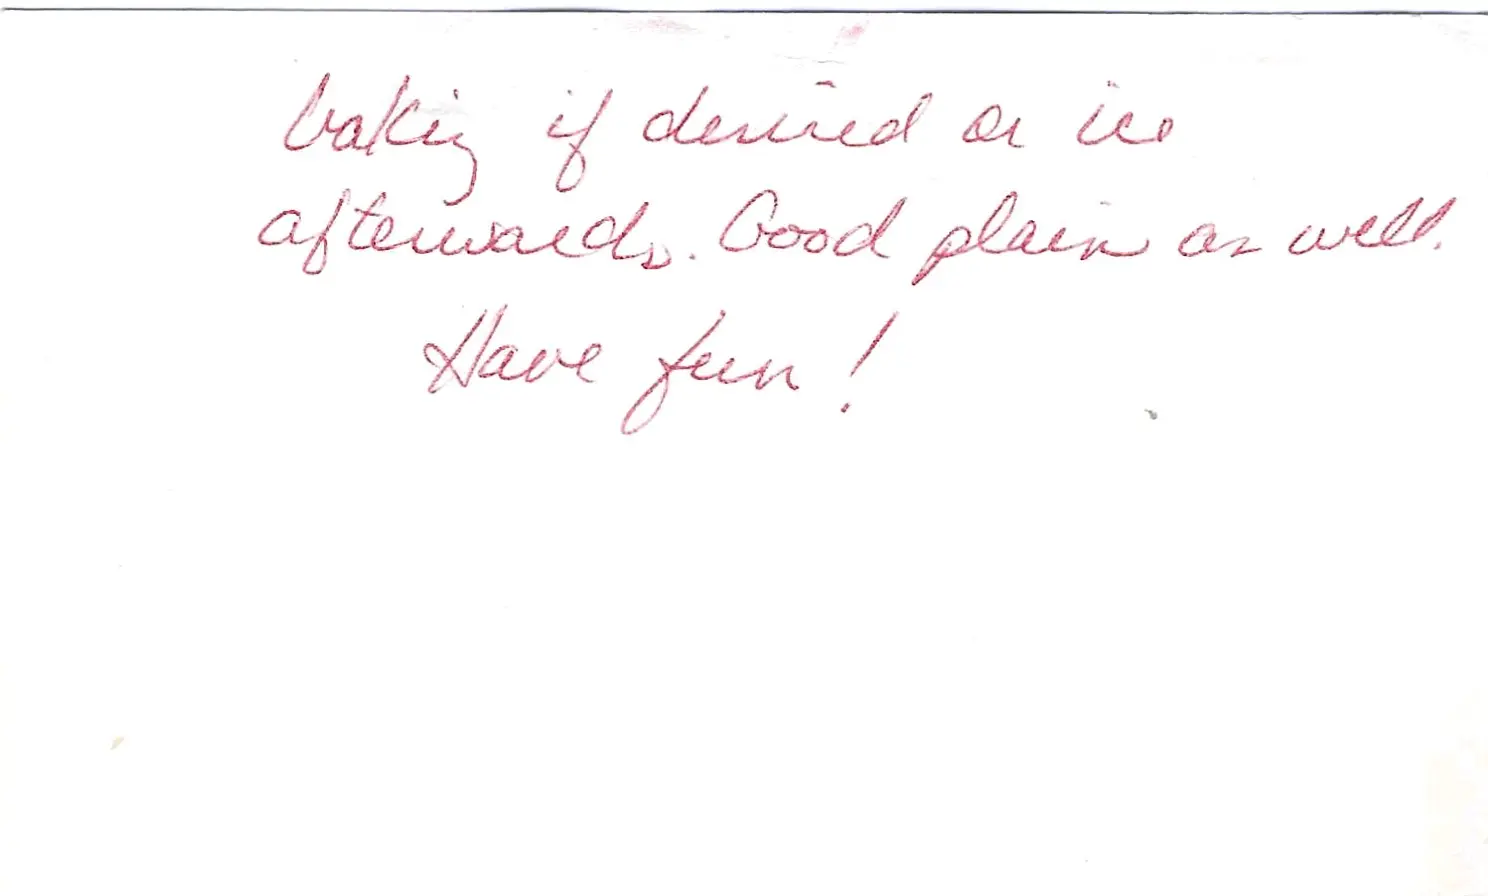 baking if desired or ice
afterwards. Good plain as well.
Have fun!